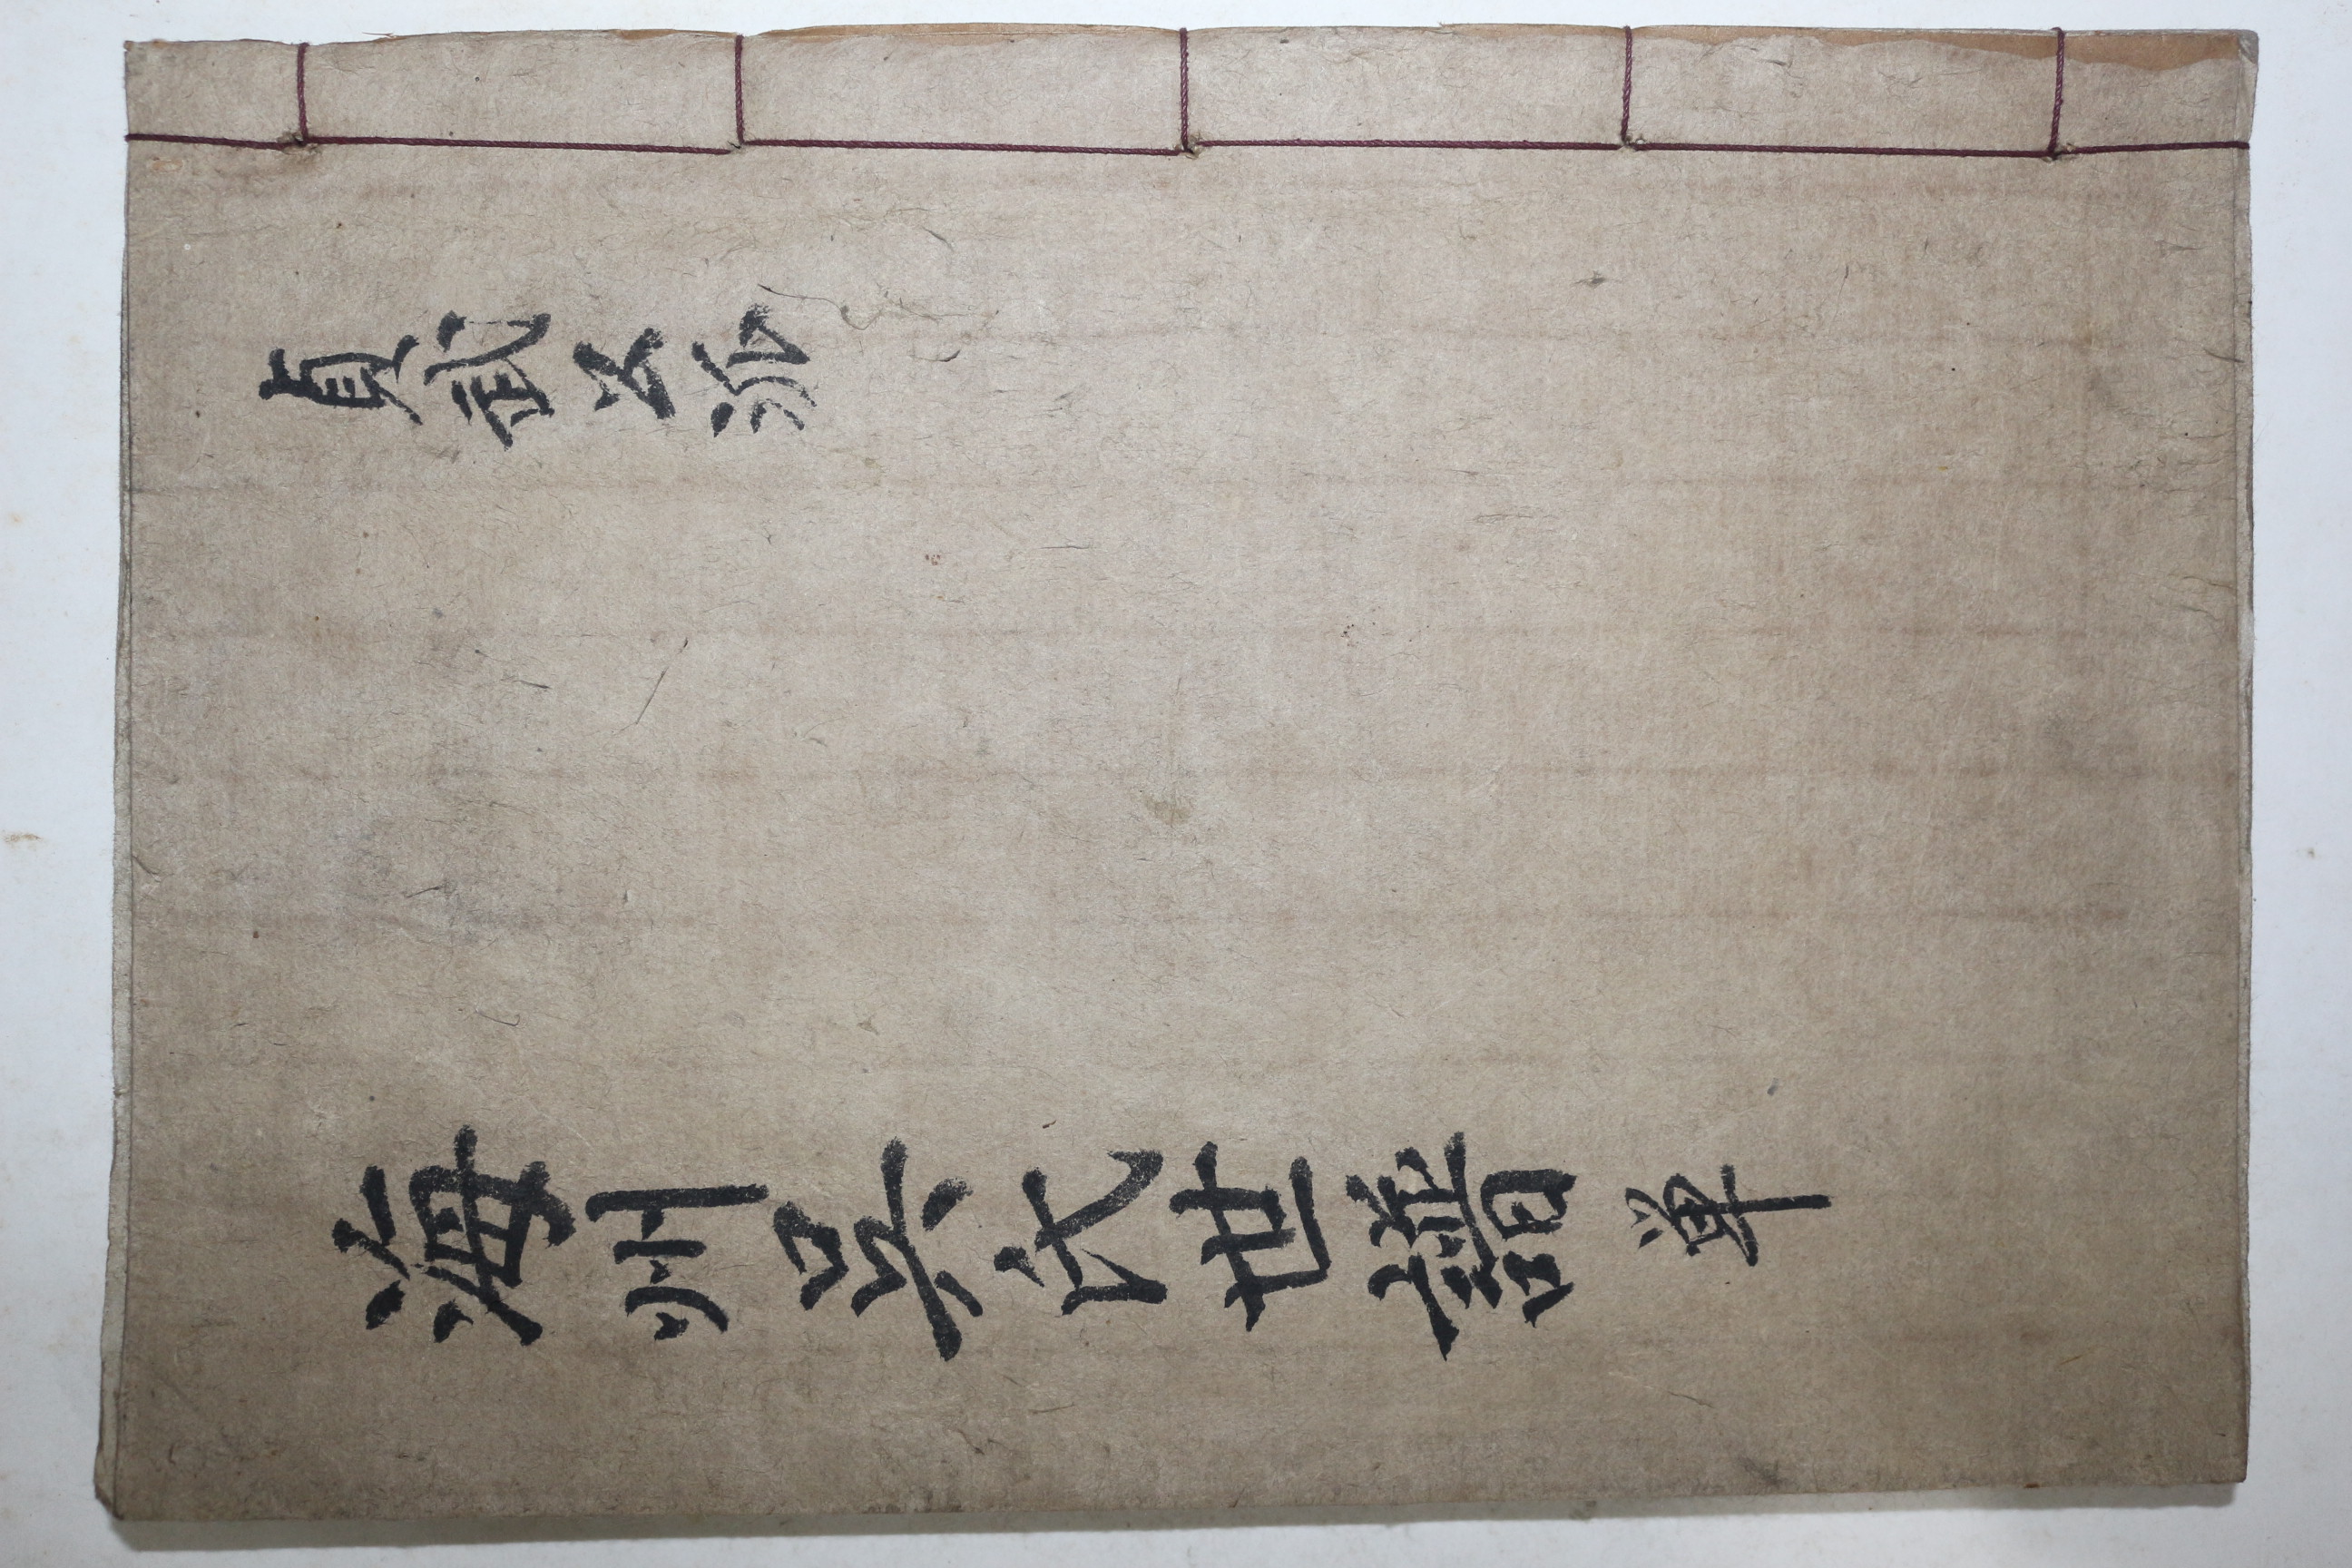 貞武公派
海州吳氏世譜 単